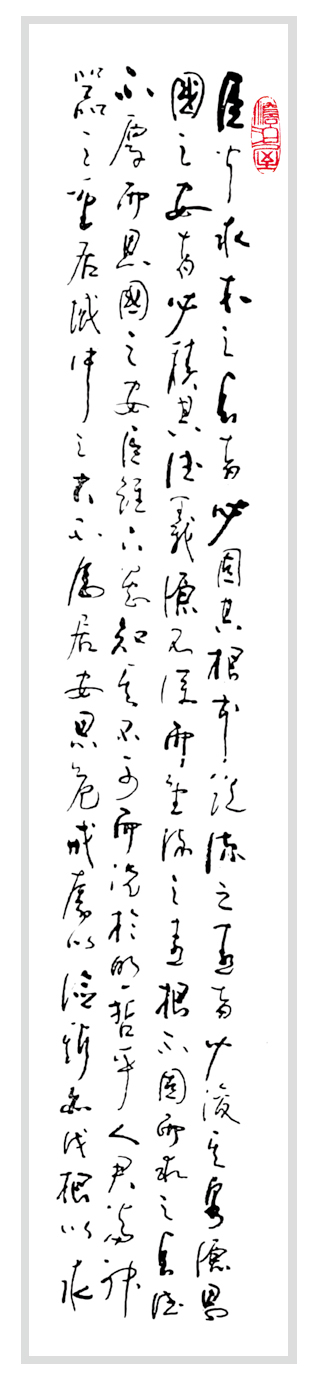 臣聞求木之長者必固其根本欲流之遠者必浚其泉源思
國之安者必積其德義源不深而望流之遠根不固而求之長德
不厚而思國之安臣雖下愚知其不可而況於明哲乎人君當神
器之重居域中之大不居安思危戒奢以儉斯亦伐根以求